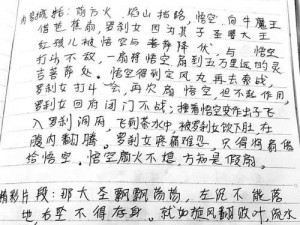 内容概括：前方火焰山挡路，悟空向牛魔王
借芭蕉扇，罗刹女因为其子圣婴大王
红孩儿被悟空与菩萨降伏，与悟空
打斗不敌，一扇将悟空扇到五万里远的灵
吉菩萨处。悟空得到定风丸再去索战，
罗刹女打斗一会，再次扇悟空，但不起作用，
罗刹女回府闭门不战；接着悟空变作虫子飞
入罗刹洞府，飞到茶水中，被罗刹女饮下肚，在
腹内翻腾。罗刹女疼痛难忍，只得将扇借
给悟空。悟空扇火不熄，方知是假扇。
精彩片段：那大圣飘飘荡荡，左沉不能落
地，右坠不得存身。就如旋风翻败叶，流水